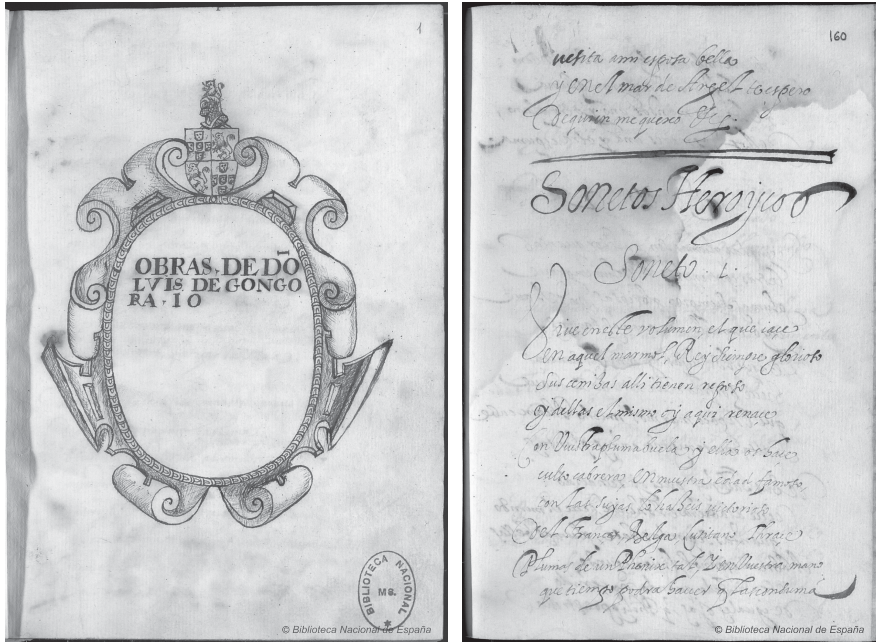 1
OBRAS. DE DÕ
LVIS DE GONGO
RA. IO
BIBLIOTECA NACIONAL
MS.
© Biblioteca Nacional de España
160
uesita a mi esposa bella
y en el mar de Argel te espero
De quien me quexo &c.
Sonetos Heroycos
Soneto 1.
Viue en este volumen el que iace
en aquel marmol, Rey siempre glorioso
sus cenizas alli tienen reposo
y dellas el mismo oy aqui renace
con Vuestra pluma buela, y ella os hace
culto cabrera en nuestra edad famoso,
con las suyas
del Frances Belga Lusitano Thrace
Plumas de un Phenix tal, y en Vuestra mano
que tiempo podra hauer q las consuma
© Biblioteca Nacional de España